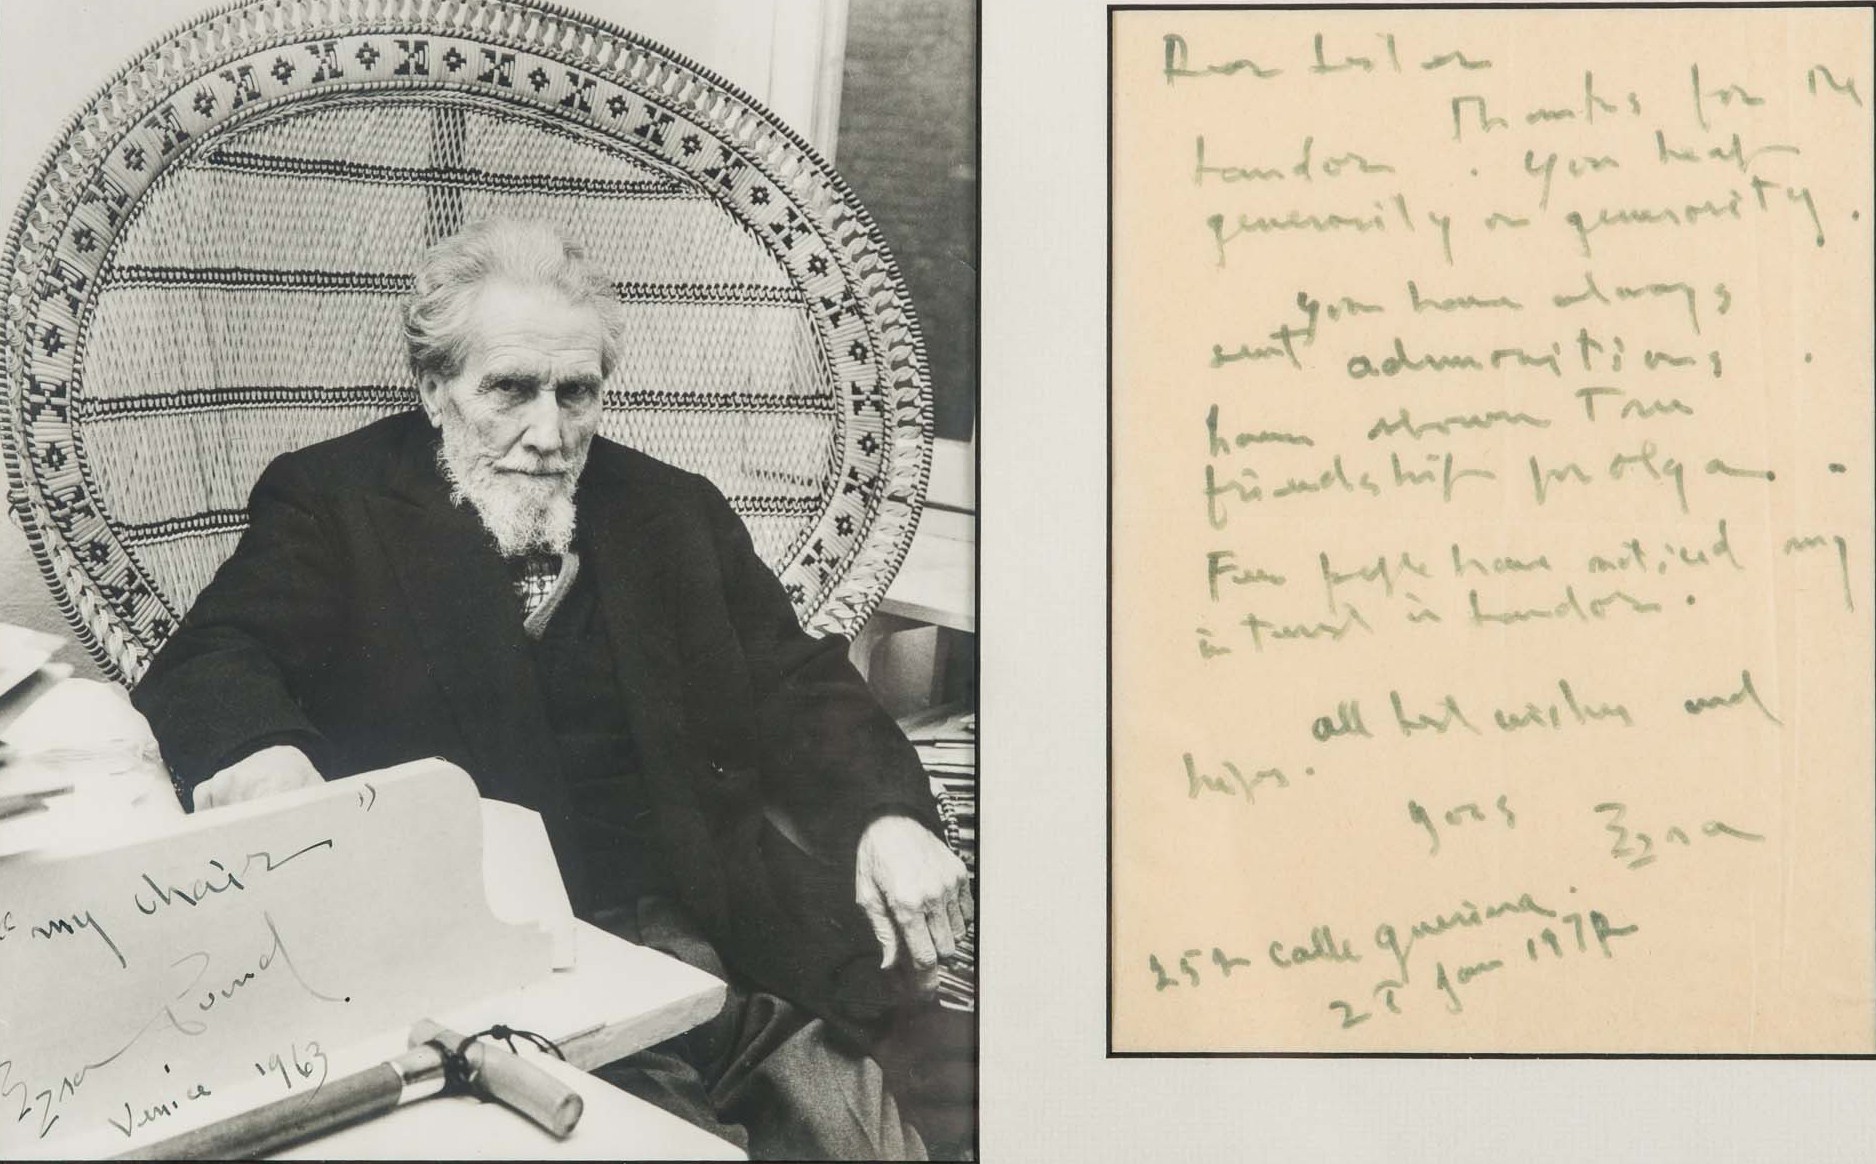 " my chair "
Ezra Pound
Venice 1963
Dear Lester
Thanks for the
Landor . You heap
generosity on generosity .
you have always
sent admonitions .
have shown True
friendship for Olga . .
Few people have noticed my
interest in Landor .
all best wishes and
hopes .
yors Ezra
252 calle querina .
2 Jan 1972